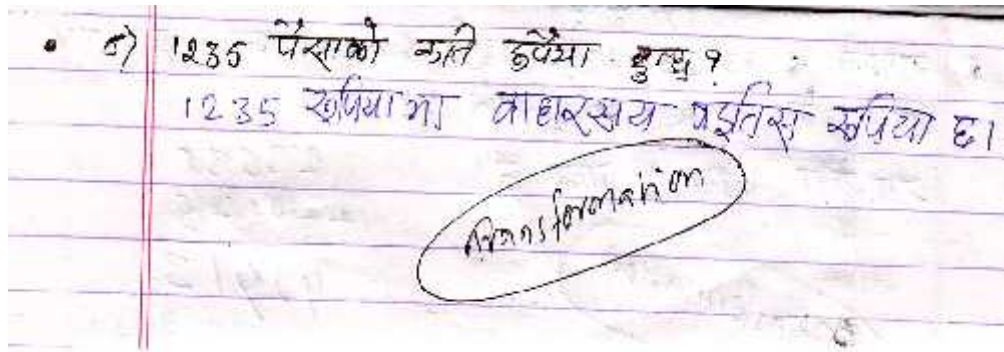 • ठ) 1235 पैसाको कति रुपैया हुन्छ ?
1235 रुपियामा बाहारसय पइतिस रुपिया छ।
Transformation